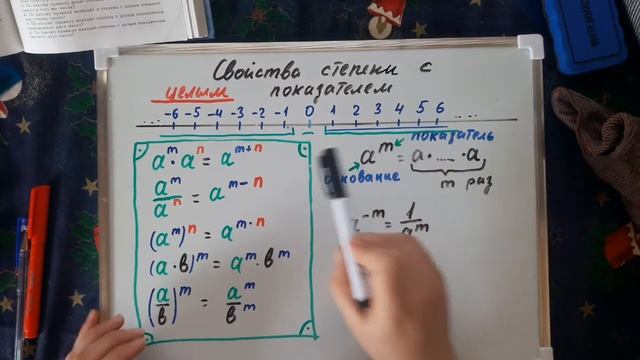 Свойства степени с
целым показателем
... -6 -5 -4 -3 -2 -1 0 1 2 3 4 5 6 ...
aᵐ · aⁿ = aᵐ⁺ⁿ
aᵐ/aⁿ = aᵐ⁻ⁿ
(aᵐ)ⁿ = aᵐ·ⁿ
(a·b)ᵐ = aᵐ · bᵐ
(a/b)ᵐ = aᵐ/bᵐ
показатель
aᵐ = a·.....·a
основание
m раз
a⁻ᵐ = 1/aᵐ